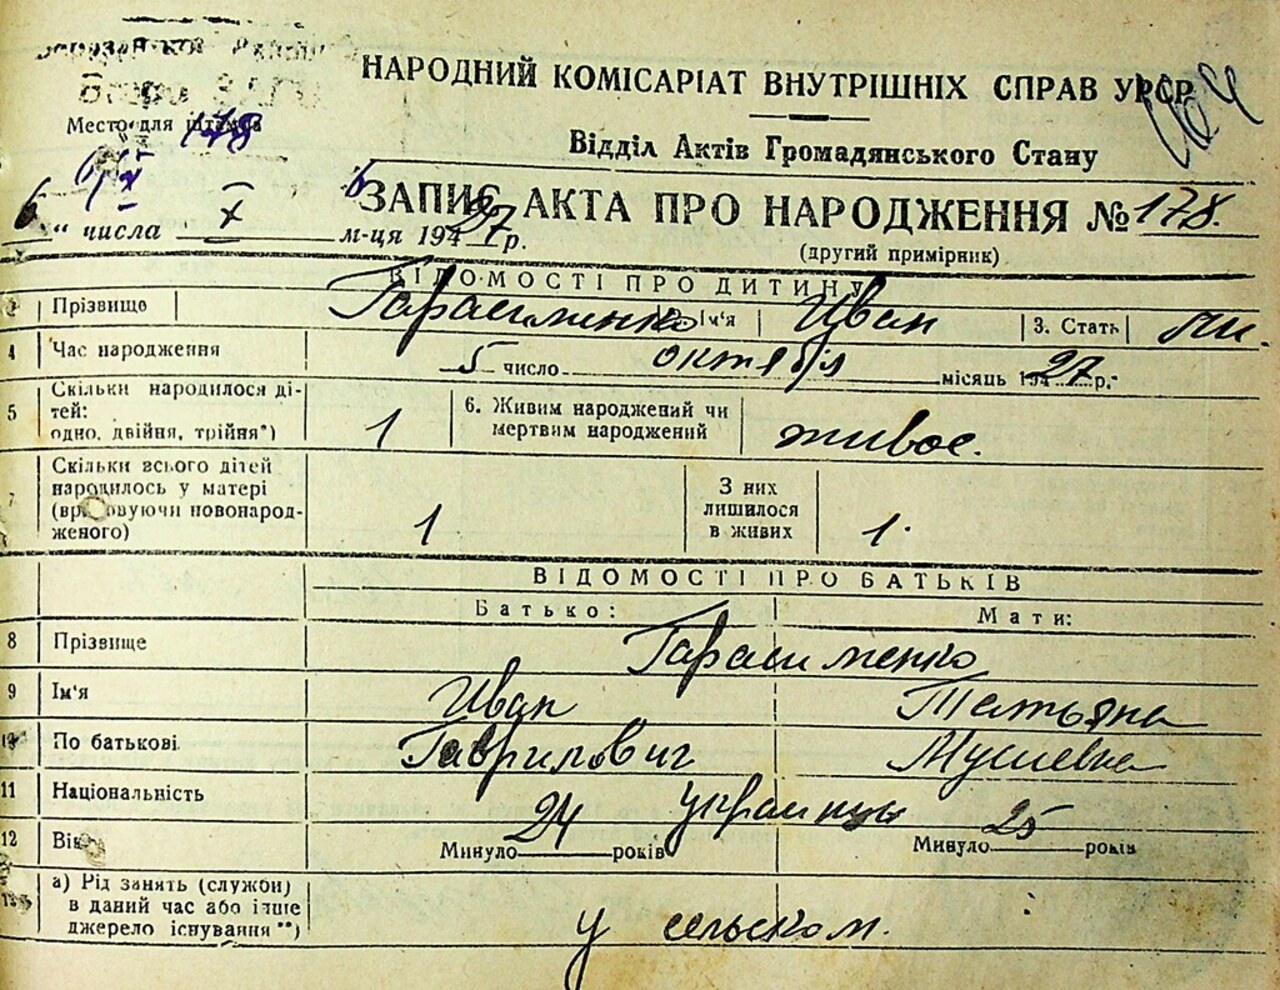 НАРОДНИЙ КОМІСАРІАТ ВНУТРІШНІХ СПРАВ УРСР
164
Место для штампа
178
Відділ Актів Громадянського Стану
ЗАПИС АКТА ПРО НАРОДЖЕННЯ № 178.
6 " числа X м-ця 194 27 р.
(другий примірник)
ВІДОМОСТІ ПРО ДИТИНУ
Прізвище Гарасименко Ім'я Иван 3. Стать
4 Час народження 5 число октября місяць 194 27 р.
5 Скільки народилося ді-
тей:
одно, двійня, трійня*) 1
6. Живим народжений чи
мертвим народжений живое.
7 Скільки всього дітей
народилось у матері
(враховуючи новонарод-
женого) 1
З них
лишилося
в живих 1.
ВІДОМОСТІ ПРО БАТЬКІВ
Батько: Мати:
8 Прізвище Гарасименко
9 Ім'я Иван Татьяна
10 По батькові Гаврилович Мусиевна
11 Національність украинцы
12 Вік Минуло 24 років Минуло 25 років
13 а) Рід занять (служби)
в даний час або інше
джерело існування **) у сельском.